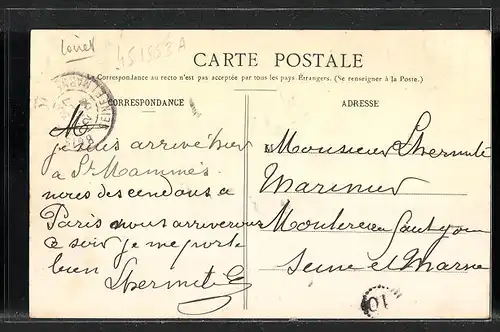 Loiret
451553A
CARTE POSTALE
La Correspondance au recto n'est pas acceptée par tous les pays Étrangers. (Se renseigner à la Poste.)
CORRESPONDANCE
M
je suis arrivé hier
a St Mammès
nous descendons a
Paris nous arriverons
ce soir je me porte
bien Lhermite
ADRESSE
Monsieur Lhermité
Marinier
Montereau faut yonne
Seine et Marne